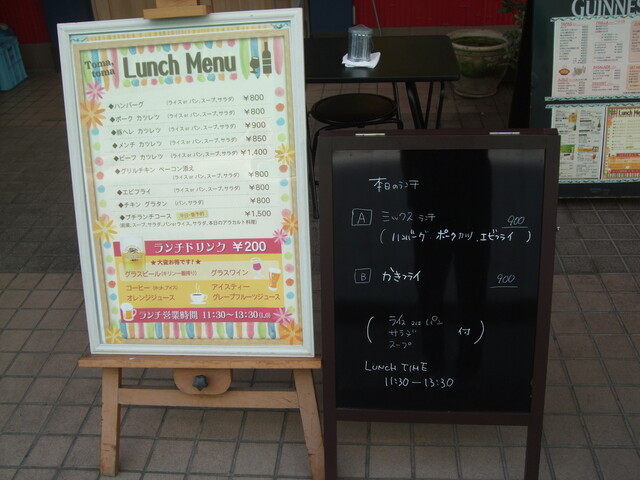 Toma,
toma
Lunch Menu
◆ハンバーグ (ライス or パン、スープ、サラダ) ¥800
◆ポーク カツレツ (ライス or パン、スープ、サラダ) ¥800
◆豚ヘレ カツレツ (ライス or パン、スープ、サラダ) ¥900
◆メンチ カツレツ (ライス or パン、スープ、サラダ) ¥850
◆ビーフ カツレツ (ライス or パン、スープ、サラダ) ¥1,400
◆グリルチキン ベーコン添え
(ライス or パン、スープ、サラダ) ¥800
◆エビフライ (ライス or パン、スープ、サラダ) ¥800
◆チキン グラタン (パン、サラダ) ¥800
◆プチランチコース ¥1,500
ランチドリンク ¥200
★大変お得です!★
グラスビール(キリン一番搾り) グラスワイン
コーヒー(ホット、アイス) アイスティー
オレンジジュース グレープフルーツジュース
ランチ営業時間 11:30~13:30(L.O)
本日のランチ
A ミックス ランチ 900
(ハンバーグ、ポークカツ、エビフライ)
B かきフライ 900
(ライス or パン
サラダ 付)
スープ
LUNCH TIME
11:30-13:30
GUINNESS
Lunch Menu